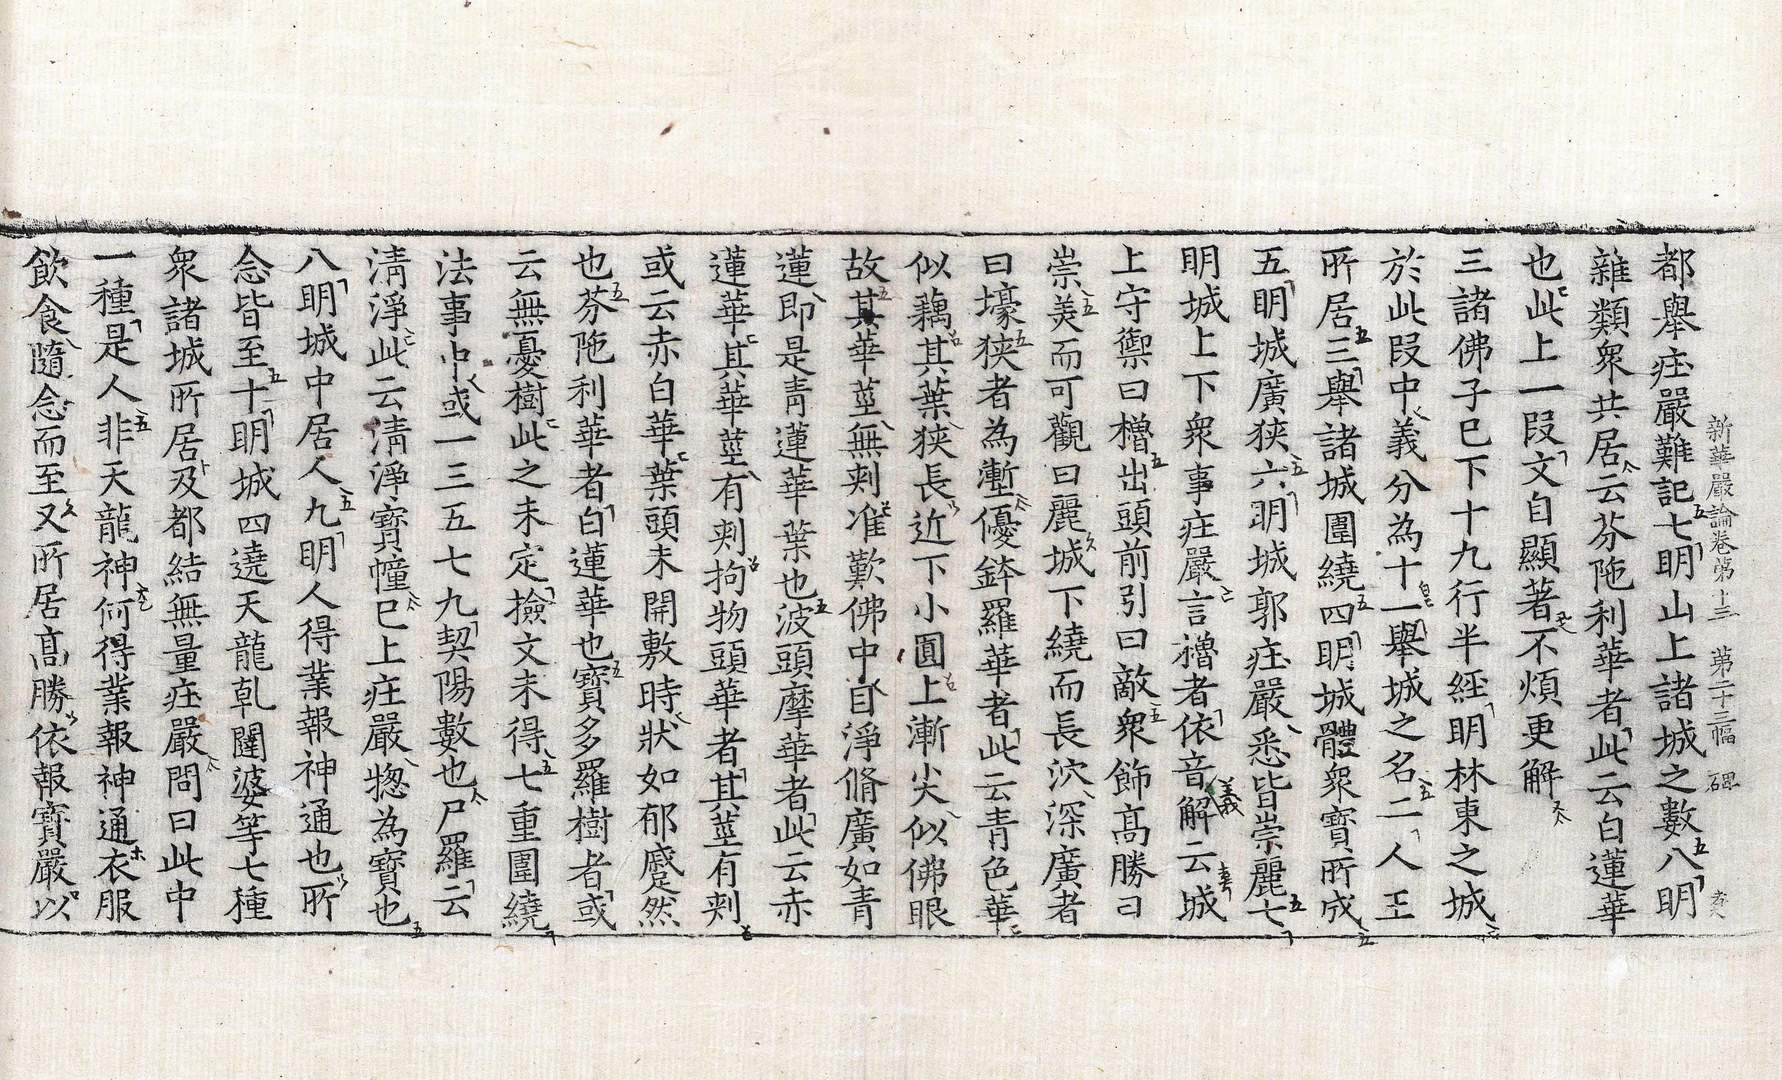 新華嚴論卷第十三　第二十三幅
都舉庄嚴難記七明山上諸城之數八明
雜類衆共居云芬陁利華者此云白蓮華
也此上一段文自顯著不煩更解
三諸佛子巳下十九行半經明林東之城
於此段中義分為十一舉城之名二人王
所居三舉諸城圍繞四明城體衆寶所成
五明城廣狹六明城郭庄嚴悉皆崇麗七
明城上下衆事庄嚴言櫓者依音義解云城
上守禦曰櫓出頭前引曰敵衆飾高勝曰
崇美而可觀曰麗城下繞而長㳄深廣者
曰壕狹者為壍優鉢羅華者此云青色華
似藕其葉狹長近下小圓上漸尖似佛眼
故其華莖無刾准歎佛中目淨脩廣如青
蓮即是青蓮華葉也波頭摩華者此云赤
蓮華其華莖有刾拘物頭華者其莖有刾
或云赤白華葉頭未開敷時狀如郁蹙然
也芬陁利華者白蓮華也寶多羅樹者或
云無憂樹此之未定撿文未得七重圍繞
法事中或一三五七九契陽數也尸羅云
清淨此云清淨寶幢巳上庄嚴惣為寶也
八明城中居人九明人得業報神通也所
念皆至十明城四遶天龍乹闥婆等七種
衆諸城所居及都結無量庄嚴問曰此中
一種是人非天龍神何得業報神通衣服
飲食隨念而至又所居髙勝依報寶嚴以